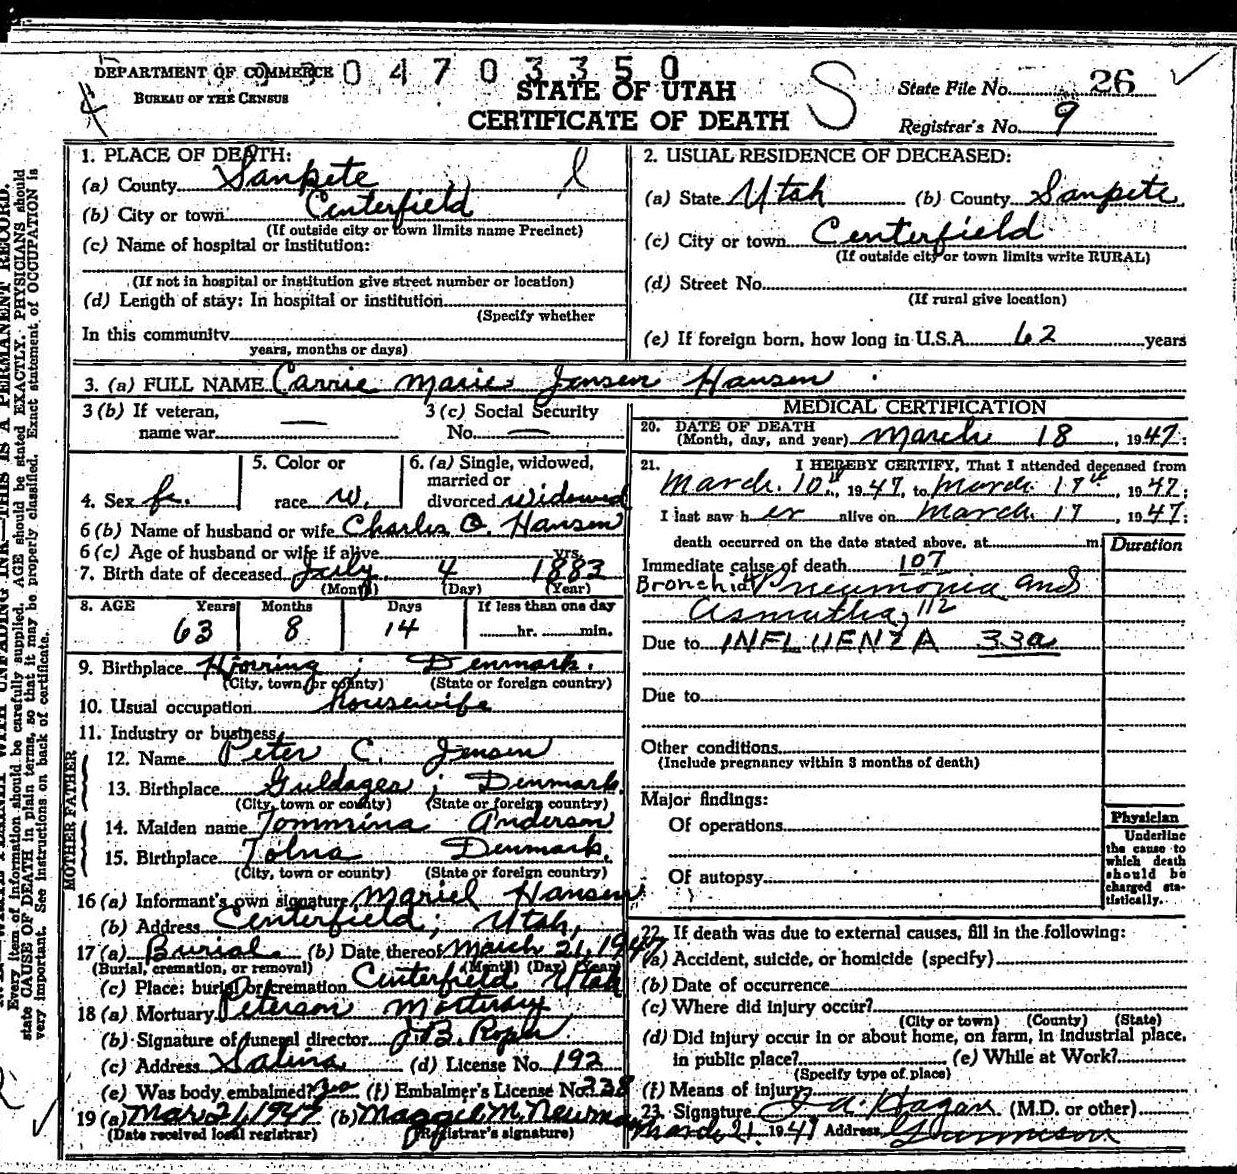 DEPARTMENT OF COMMERCE
BUREAU OF THE CENSUS
0 4 7 0 3 3 5 0
STATE OF UTAH
CERTIFICATE OF DEATH
S
State File No. 26
Registrar's No. 9
1. PLACE OF DEATH:
(a) County Sanpete
(b) City or town Centerfield
(If outside city or town limits name Precinct)
(c) Name of hospital or institution:
(If not in hospital or institution give street number or location)
(d) Length of stay: In hospital or institution
(Specify whether
In this community
years, months or days)
2. USUAL RESIDENCE OF DECEASED:
(a) State Utah (b) County Sanpete
(c) City or town Centerfield
(If outside city or town limits write RURAL)
(d) Street No.
(If rural give location)
(e) If foreign born, how long in U.S.A. 62 years
3. (a) FULL NAME Carrie Marie Jensen Hansen
3 (b) If veteran,
name war —
3 (c) Social Security
No. —
4. Sex fe.
5. Color or
race w.
6. (a) Single, widowed,
married or
divorced widowed
6 (b) Name of husband or wife Charles O. Hansen
6 (c) Age of husband or wife if alive yrs.
7. Birth date of deceased July 4 1883
(Month) (Day) (Year)
8. AGE Years Months Days If less than one day
63 8 14 hr. min.
9. Birthplace Hjorring ; Denmark.
(City, town, or county) (State or foreign country)
10. Usual occupation housewife
11. Industry or business
FATHER
12. Name Peter C. Jensen
13. Birthplace Guldager ; Denmark.
(City, town or county) (State or foreign country)
MOTHER
14. Maiden name Tommina Anderson
15. Birthplace Tolna Denmark.
(City, town or county) (State or foreign country)
16 (a) Informant's own signature Mariel Hansen
(b) Address Centerfield, Utah,
17 (a) Burial (b) Date thereof March 21, 1947
(Burial, cremation, or removal) (Month) (Day) (Year)
(c) Place: burial or cremation Centerfield Utah
18 (a) Mortuary Peterson Mortuary
(b) Signature of funeral director J. B. Roper
(c) Address Salina (d) License No. 192
(e) Was body embalmed? yes (f) Embalmer's License No. 338
19 (a) Mar 21, 1947 (b) Maggie M. Neuman
(Date received local registrar) (Registrar's signature)
MEDICAL CERTIFICATION
20. DATE OF DEATH
(Month, day, and year) March 18, 1947;
21. I HEREBY CERTIFY, That I attended deceased from
March 10th, 1947, to March 17th 1947;
I last saw her alive on March 17, 1947;
death occurred on the date stated above, at m. Duration
Immediate cause of death 107
Bronchial Pneumonia and
Asmatha, 112
Due to INFLUENZA 33a
Due to
Other conditions
(Include pregnancy within 3 months of death)
Major findings:
Of operations
Of autopsy
Physician
Underline
the cause to
which death
should be
charged sta-
tistically.
22. If death was due to external causes, fill in the following:
(a) Accident, suicide, or homicide (specify)
(b) Date of occurrence
(c) Where did injury occur?
(City or town) (County) (State)
(d) Did injury occur in or about home, on farm, in industrial place,
in public place? (e) While at Work?
(Specify type of place)
(f) Means of injury
23. Signature J. A. Hagan (M.D. or other)
March 21, 1947 Address Gunnison
THIS IS A PERMANENT RECORD.
Every item of information should be carefully supplied. AGE should be stated EXACTLY. PHYSICIANS should
state CAUSE OF DEATH in plain terms, so that it may be properly classified. Exact statement of OCCUPATION is
very important. See instructions on back of certificate.